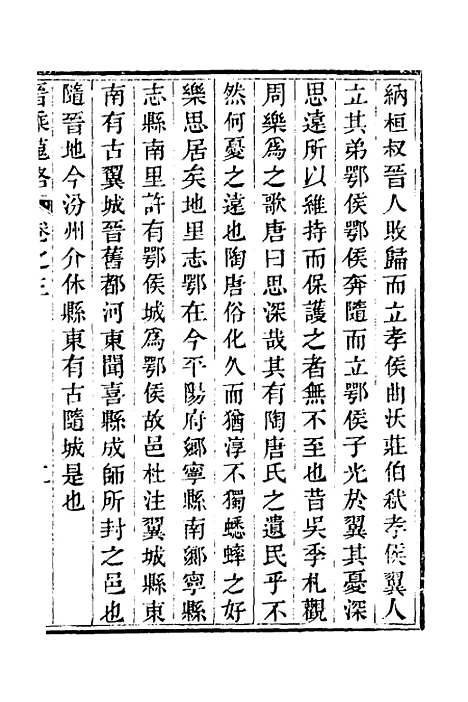 納桓叔晉人敗歸而立孝侯曲沃莊伯弒孝侯翼人
立其弟鄂侯鄂侯奔隨而立鄂侯子光於翼其憂深
思遠所以維持而保護之者無不至也昔吳季札觀
周樂為之歌唐曰思深哉其有陶唐氏之遺民乎不
然何憂之遠也陶唐俗化久而猶淳不獨蟋蟀之好
樂思居矣地里志鄂在今平陽府鄉寧縣南鄉寧縣
志縣南里許有鄂侯城為鄂侯故邑杜注翼城縣東
南有古翼城晉舊都河東聞喜縣成師所封之邑也
隨晉地今汾州介休縣東有古隨城是也
晉乘蒐略 卷之三